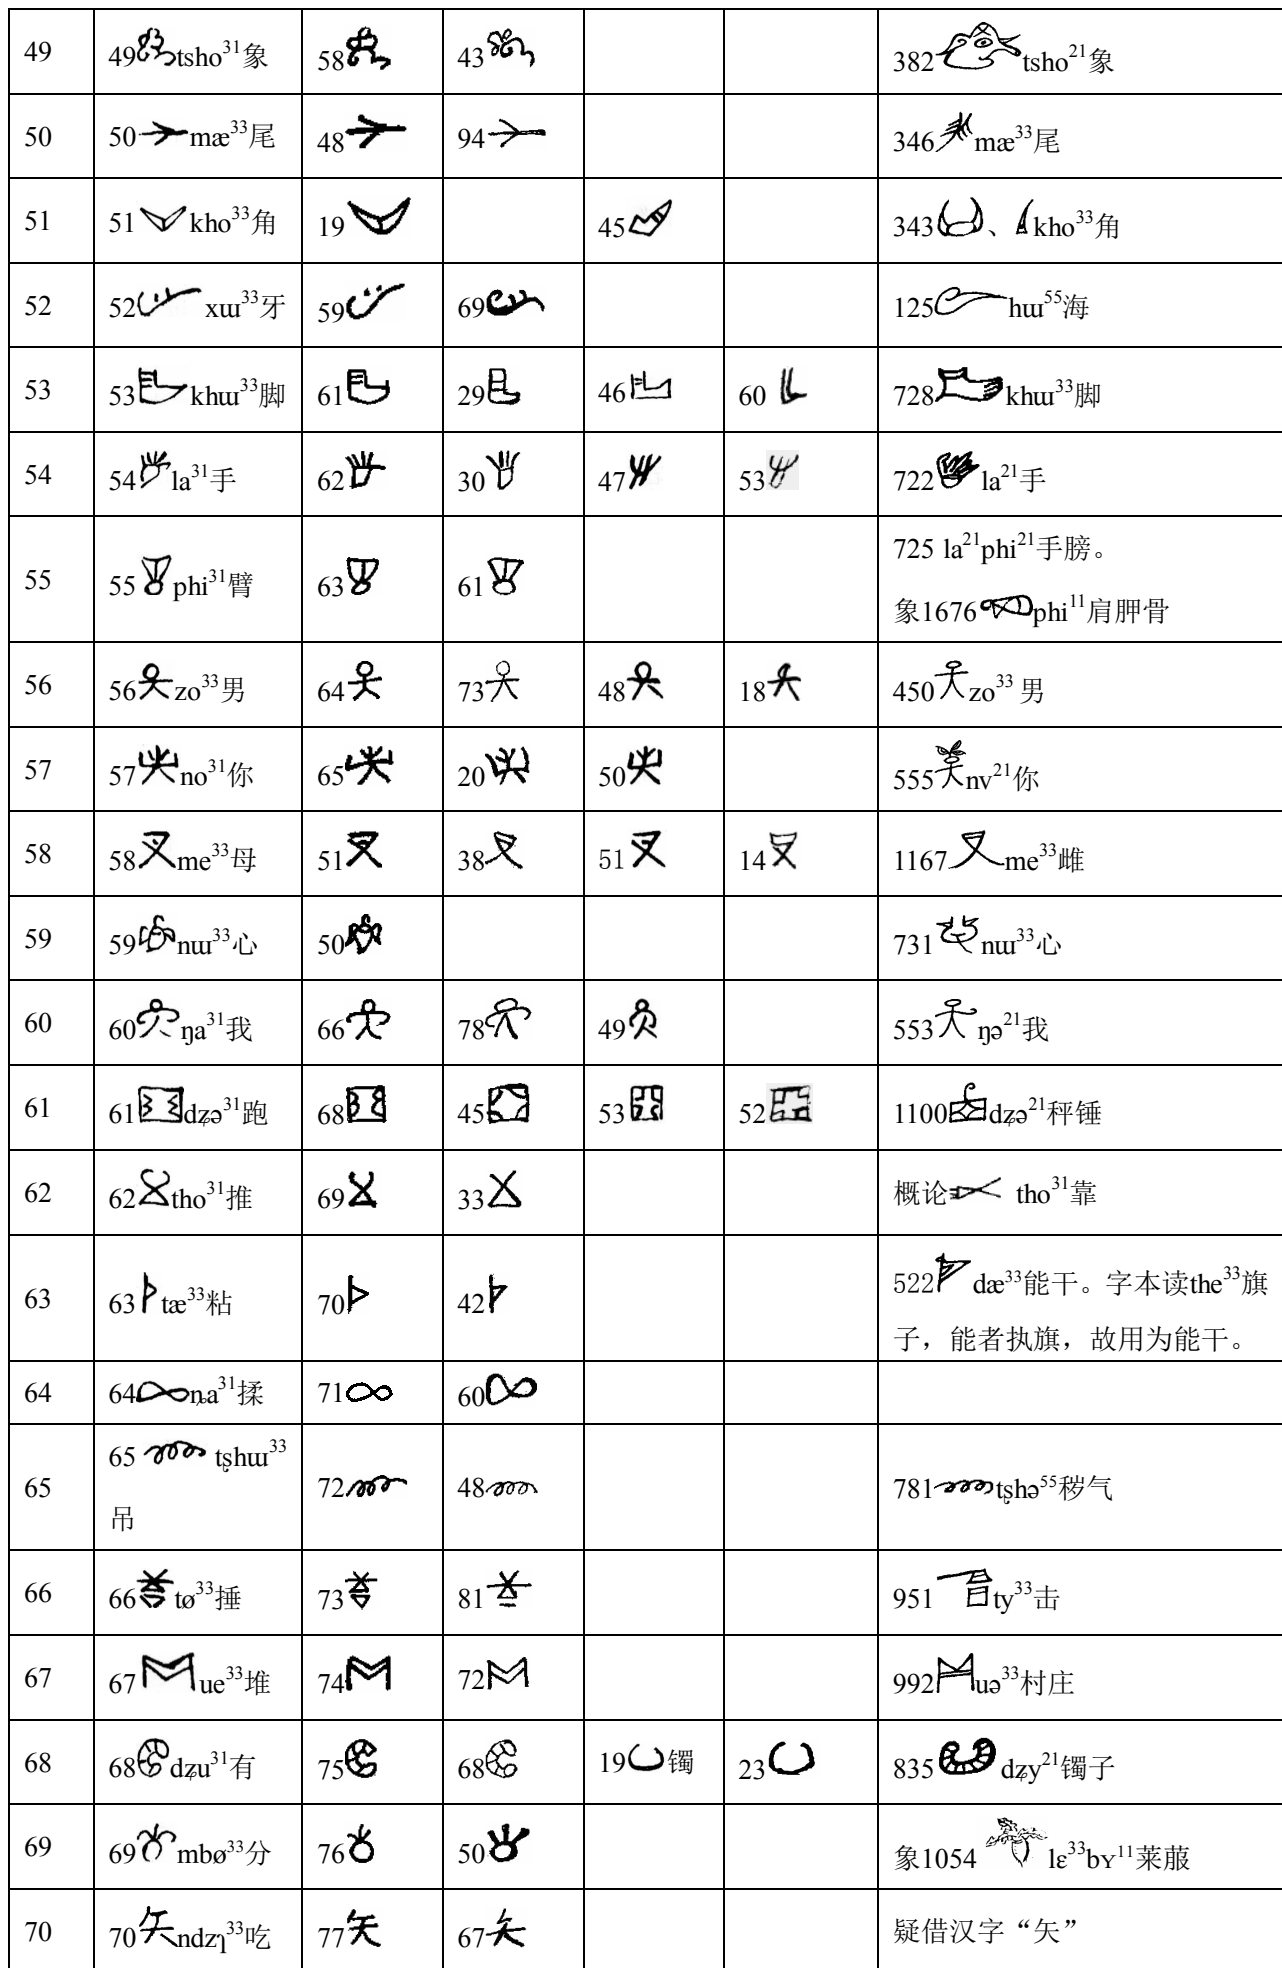 49 49 tsho³¹象 58 43 382 tsho²¹象
50 50 mæ³³尾 48 94 346 mæ³³尾
51 51 kho³³角 19 45 343 、 kho³³角
52 52 xɯ³³牙 59 69 125 hɯ⁵⁵海
53 53 khɯ³³脚 61 29 46 60 728 khɯ³³脚
54 54 la³¹手 62 30 47 53 722 la²¹手
55 55 phi³¹臂 63 61 725 la²¹phi²¹手膀。
象1676 phi¹¹肩胛骨
56 56 zo³³男 64 73 48 18 450 zo³³ 男
57 57 no³¹你 65 20 50 555 nv²¹你
58 58 me³³母 51 38 51 14 1167 me³³雌
59 59 nɯ³³心 50 731 nɯ³³心
60 60 ŋa³¹我 66 78 49 553 ŋə²¹我
61 61 dʐə³¹跑 68 45 53 52 1100 dʐə²¹秤锤
62 62 tho³¹推 69 33 概论 tho³¹靠
63 63 tæ³³粘 70 42 522 dæ³³能干。字本读the³³旗
子，能者执旗，故用为能干。
64 64 ȵa³¹揉 71 60
65 65 tʂhɯ³³
吊 72 48 781 tʂhə⁵⁵秽气
66 66 tø³³捶 73 81 951 ty³³击
67 67 ue³³堆 74 72 992 uə³³村庄
68 68 dʐu³¹有 75 68 19 镯 23 835 dʐy²¹镯子
69 69 mbø³³分 76 50 象1054 lɛ³³bʏ¹¹莱菔
70 70 ndzɿ³³吃 77 67 疑借汉字“矢”